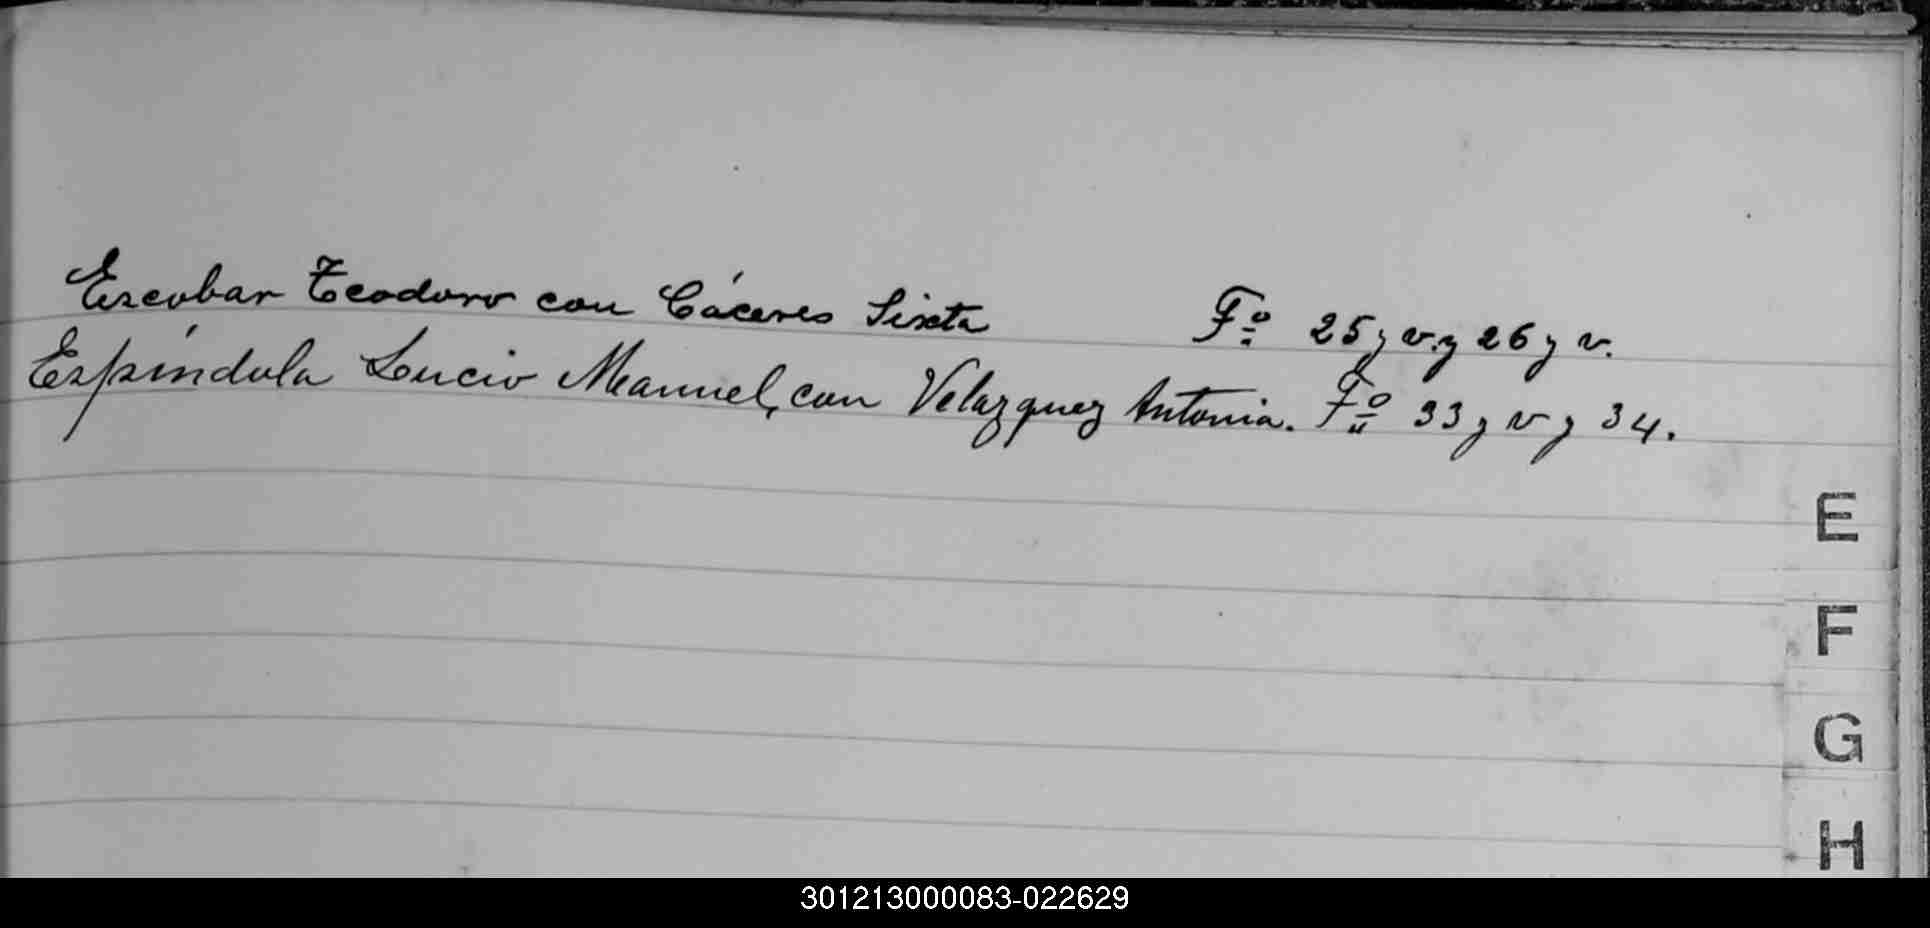 Escobar Teodoro con Cáceres Sixta Fº 25 y v. y 26 y v.
Espíndula Lucio Manuel, con Velazquez Antonia. Fº 33 y v y 34.
E
F
G
H
301213000083-022629